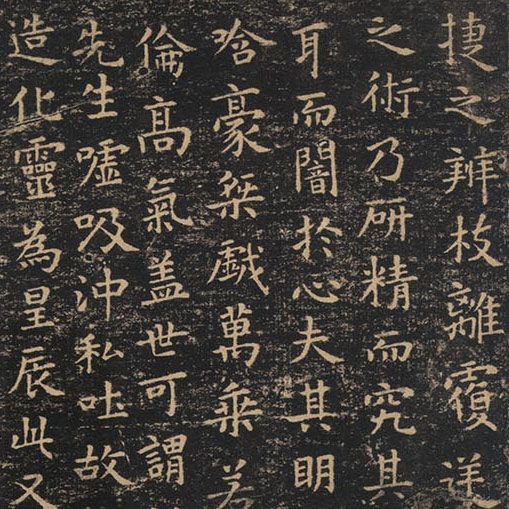 捷之辨枝離覆逆
之術乃研精而究其
耳而闇於心夫其明
哈豪桀戲萬乘若
倫髙氣盖世可謂
先生噓吸沖和吐故
造化靈為星辰此又